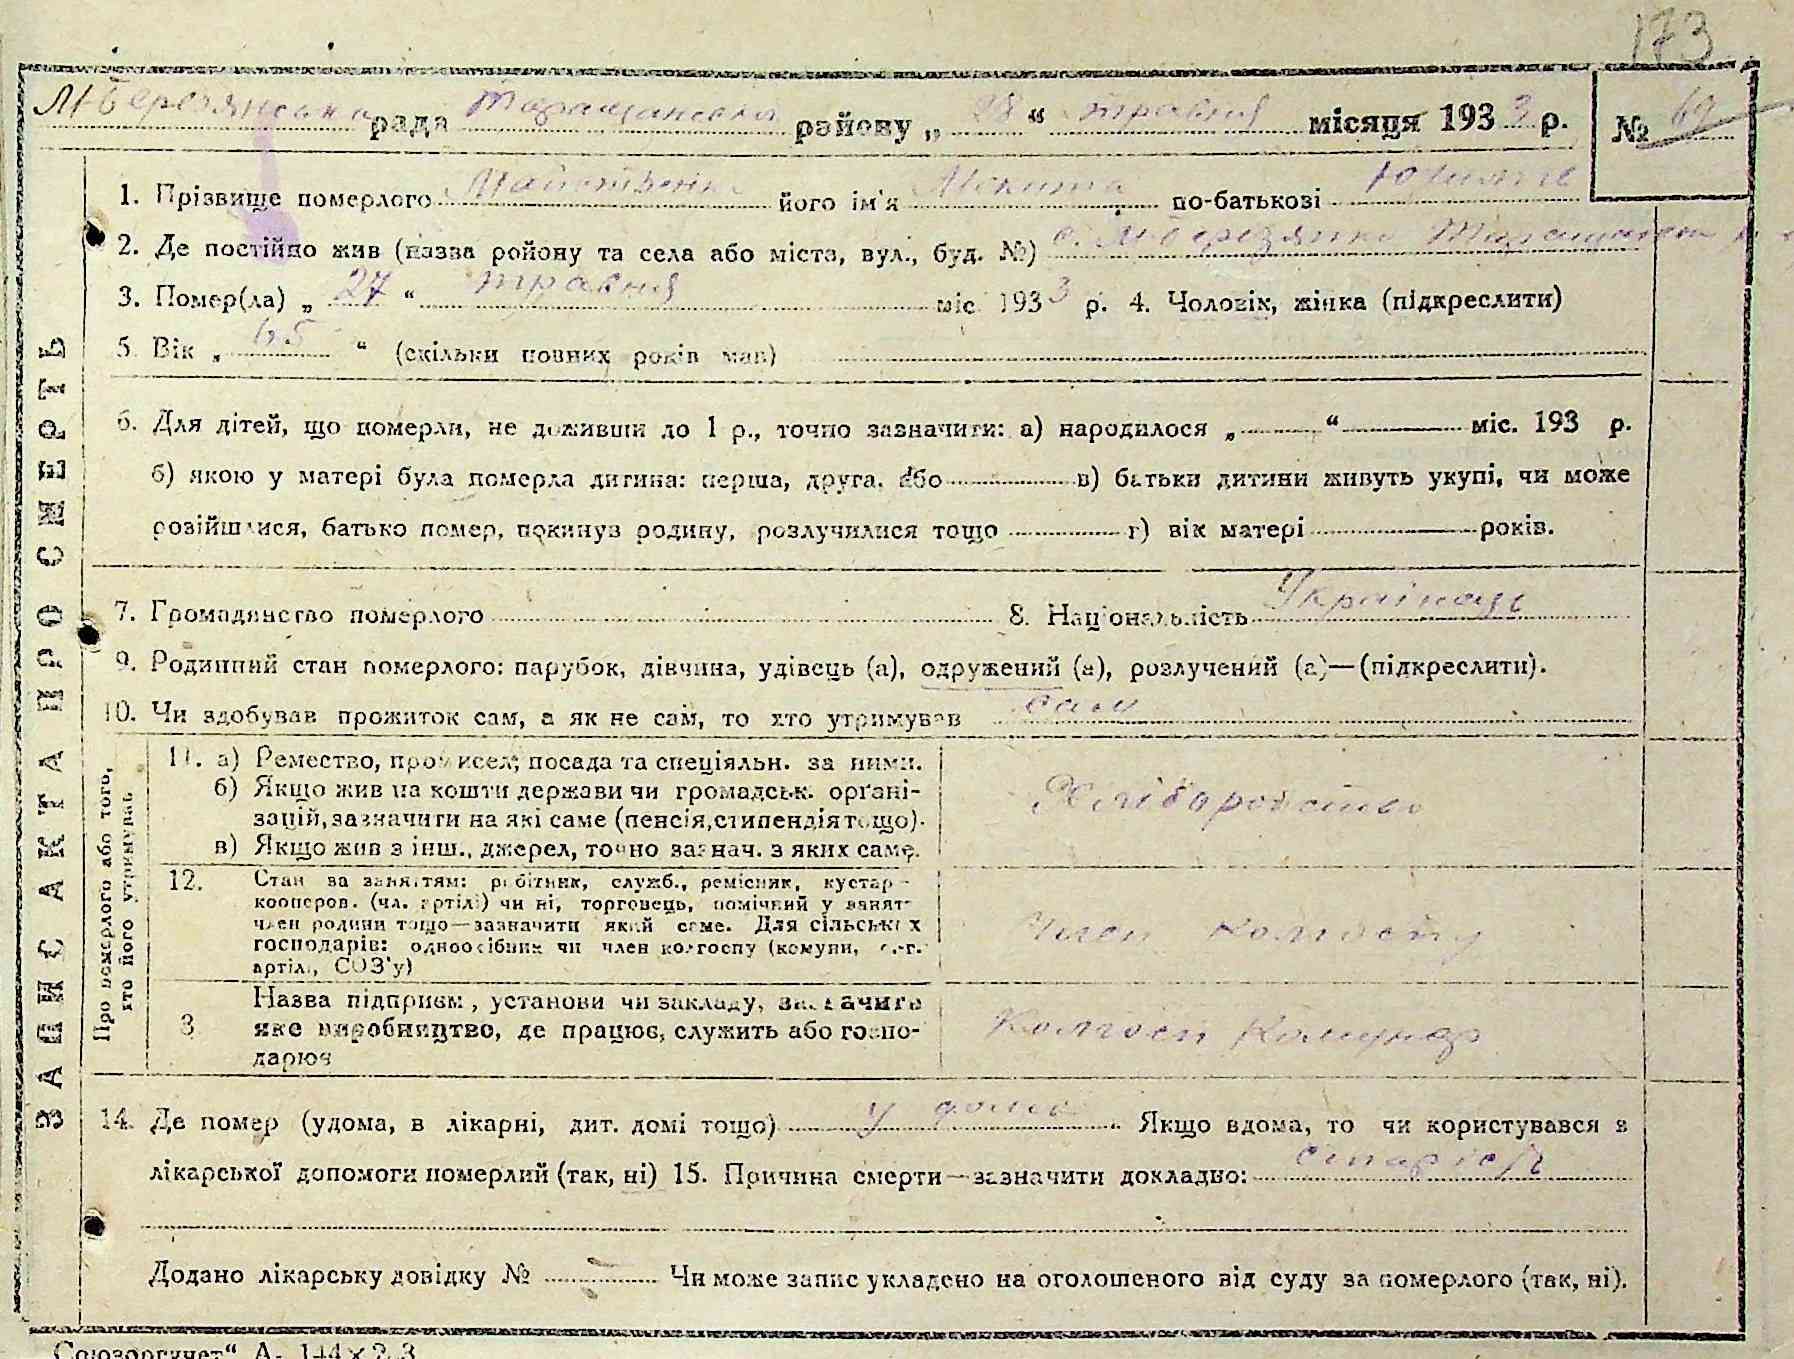 173
М-Березянська рада Таращанського району „ 28 “ травня місяця 1933 р. № 69
ЗАПИС АКТА ПРО СМЕРТЬ
1. Прізвище померлого його ім'я Микита по-батькові
2. Де постійно жив (назва ройону та села або міста, вул., буд. №) с. М-Березянка
3. Помер(ла) „ 27 “ травня міс 1933 р. 4. Чоловік, жінка (підкреслити)
5. Вік „ 65 “ (скільки повних років мав)
6. Для дітей, що померли, не доживши до 1 р., точно зазначити: а) народилося „ “ міс. 193 р.
б) якою у матері була померла дитина: перша, друга, або в) батьки дитини живуть укупі, чи може
розійшлися, батько помер, покинув родину, розлучилися тощо г) вік матері років.
7. Громадянство померлого 8. Національність Українець
9. Родинний стан померлого: парубок, дівчина, удівець (а), одружений (а), розлучений (а)—(підкреслити).
10. Чи здобував прожиток сам, а як не сам, то хто утримував сам
Про померлого або того, хто його утримував
11. а) Ремество, промисел, посада та спеціяльн. за ними.
б) Якщо жив на кошти держави чи громадськ. органі-
зацій, зазначити на які саме (пенсія, стипендія тощо).
в) Якщо жив з інш., джерел, точно зазнач. з яких саме.
Хліборобство
12. Стан за заняттям: робітник, служб., ремісник, кустар-
кооперов. (чл. артілі) чи ні, торговець, помічний у занят-
член родини тощо—зазначити який саме. Для сільських
господарів: одноосібник чи член колгоспу (комуни, с.-г.
артіл., СОЗ'у)
Член колгоспу
3 Назва підприєм, установи чи закладу, зазначити
яке виробництво, де працює, служить або госпо-
дарює
Колгосп Комунар
14. Де помер (удома, в лікарні, дит. домі тощо) у дома Якщо вдома, то чи користувався з
лікарської допомоги померлий (так, ні) 15. Причина смерти—зазначити докладно: старість
Додано лікарську довідку № Чи може запис укладено на оголошеного від суду за померлого (так, ні).